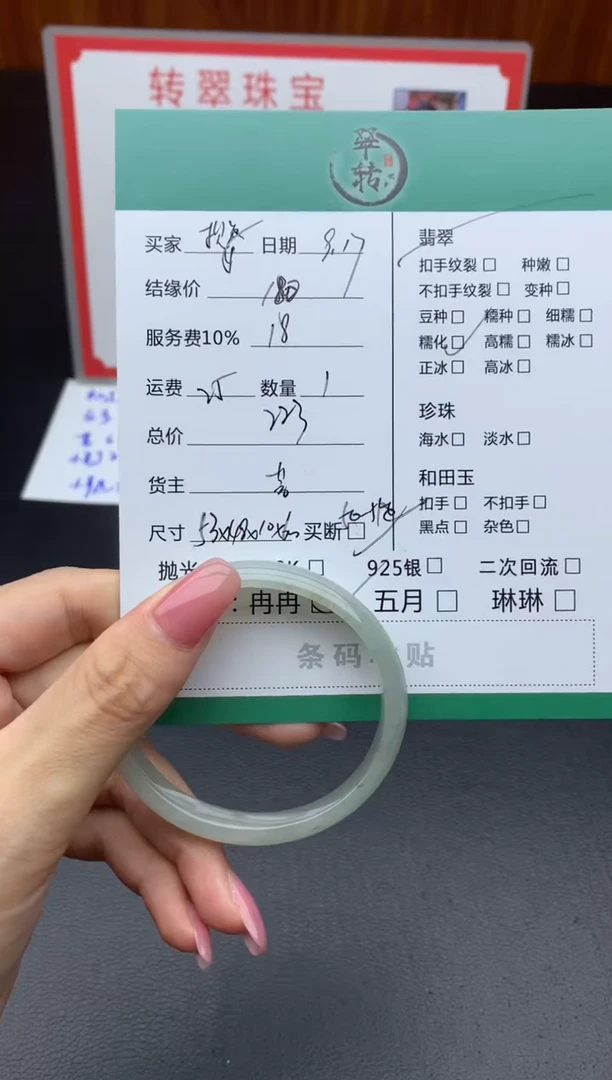 转翠珠宝
翠转
买家 日期 9.17
结缘价 180
服务费10% 18
运费 25 数量 1
总价 223
货主
尺寸 买断□
抛光
冉冉□ 五月□ 琳琳□
925银□ 二次回流□
翡翠
扣手纹裂□ 种嫩□
不扣手纹裂□ 变种□
豆种□ 糯种□ 细糯□
糯化□ 高糯□ 糯冰□
正冰□ 高冰□
珍珠
海水□ 淡水□
和田玉
扣手□ 不扣手□
黑点□ 杂色□
条码 贴